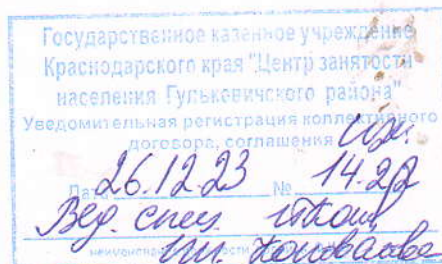 Государственное казенное учреждение
Краснодарского края "Центр занятости
населения Гулькевичского района"
Уведомительная регистрация коллективного
договора, соглашения
Дата 26.12.23 № 14.22
Вед. спец.